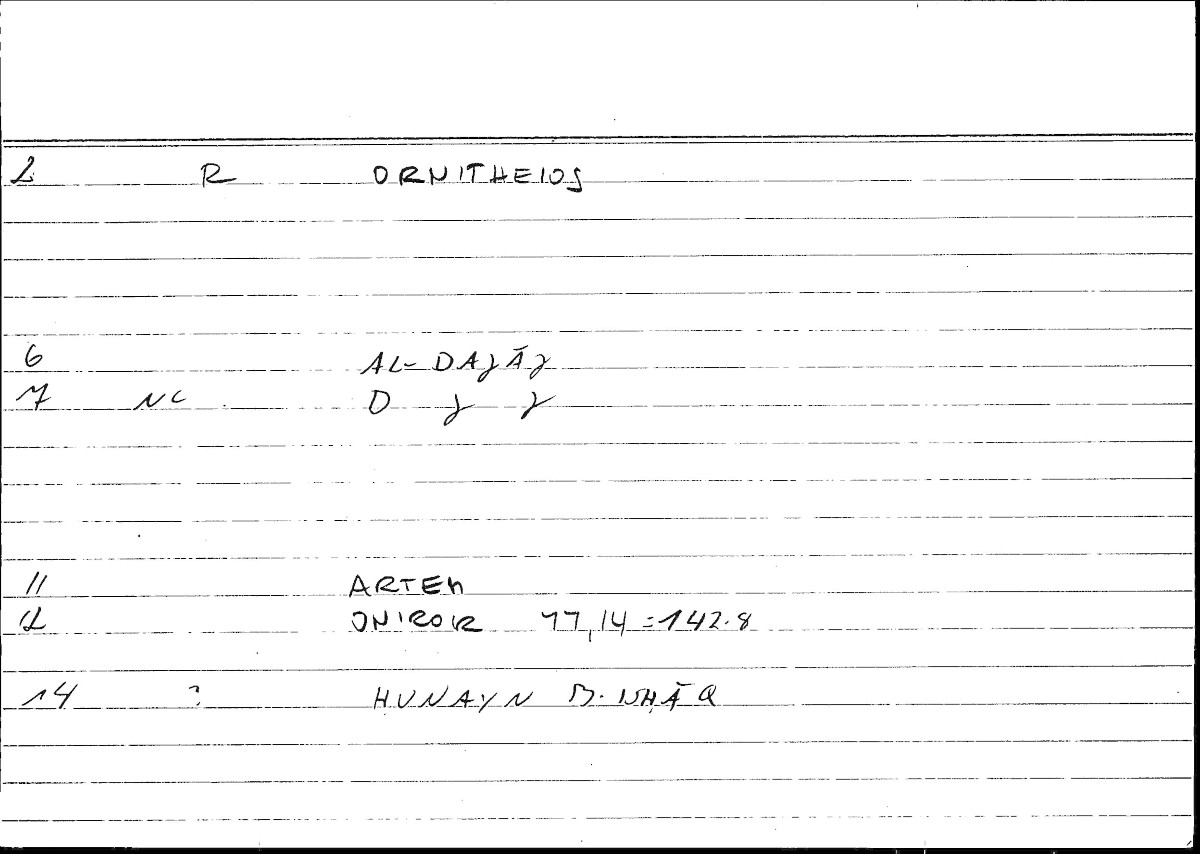 2 R ORNITHEIOS
6 AL-DAJĀJ
7 NC D J J
11 ARTEM
12 ONIROK 77,14 = 142.8
14 ? HUNAYN B. ISḤĀQ